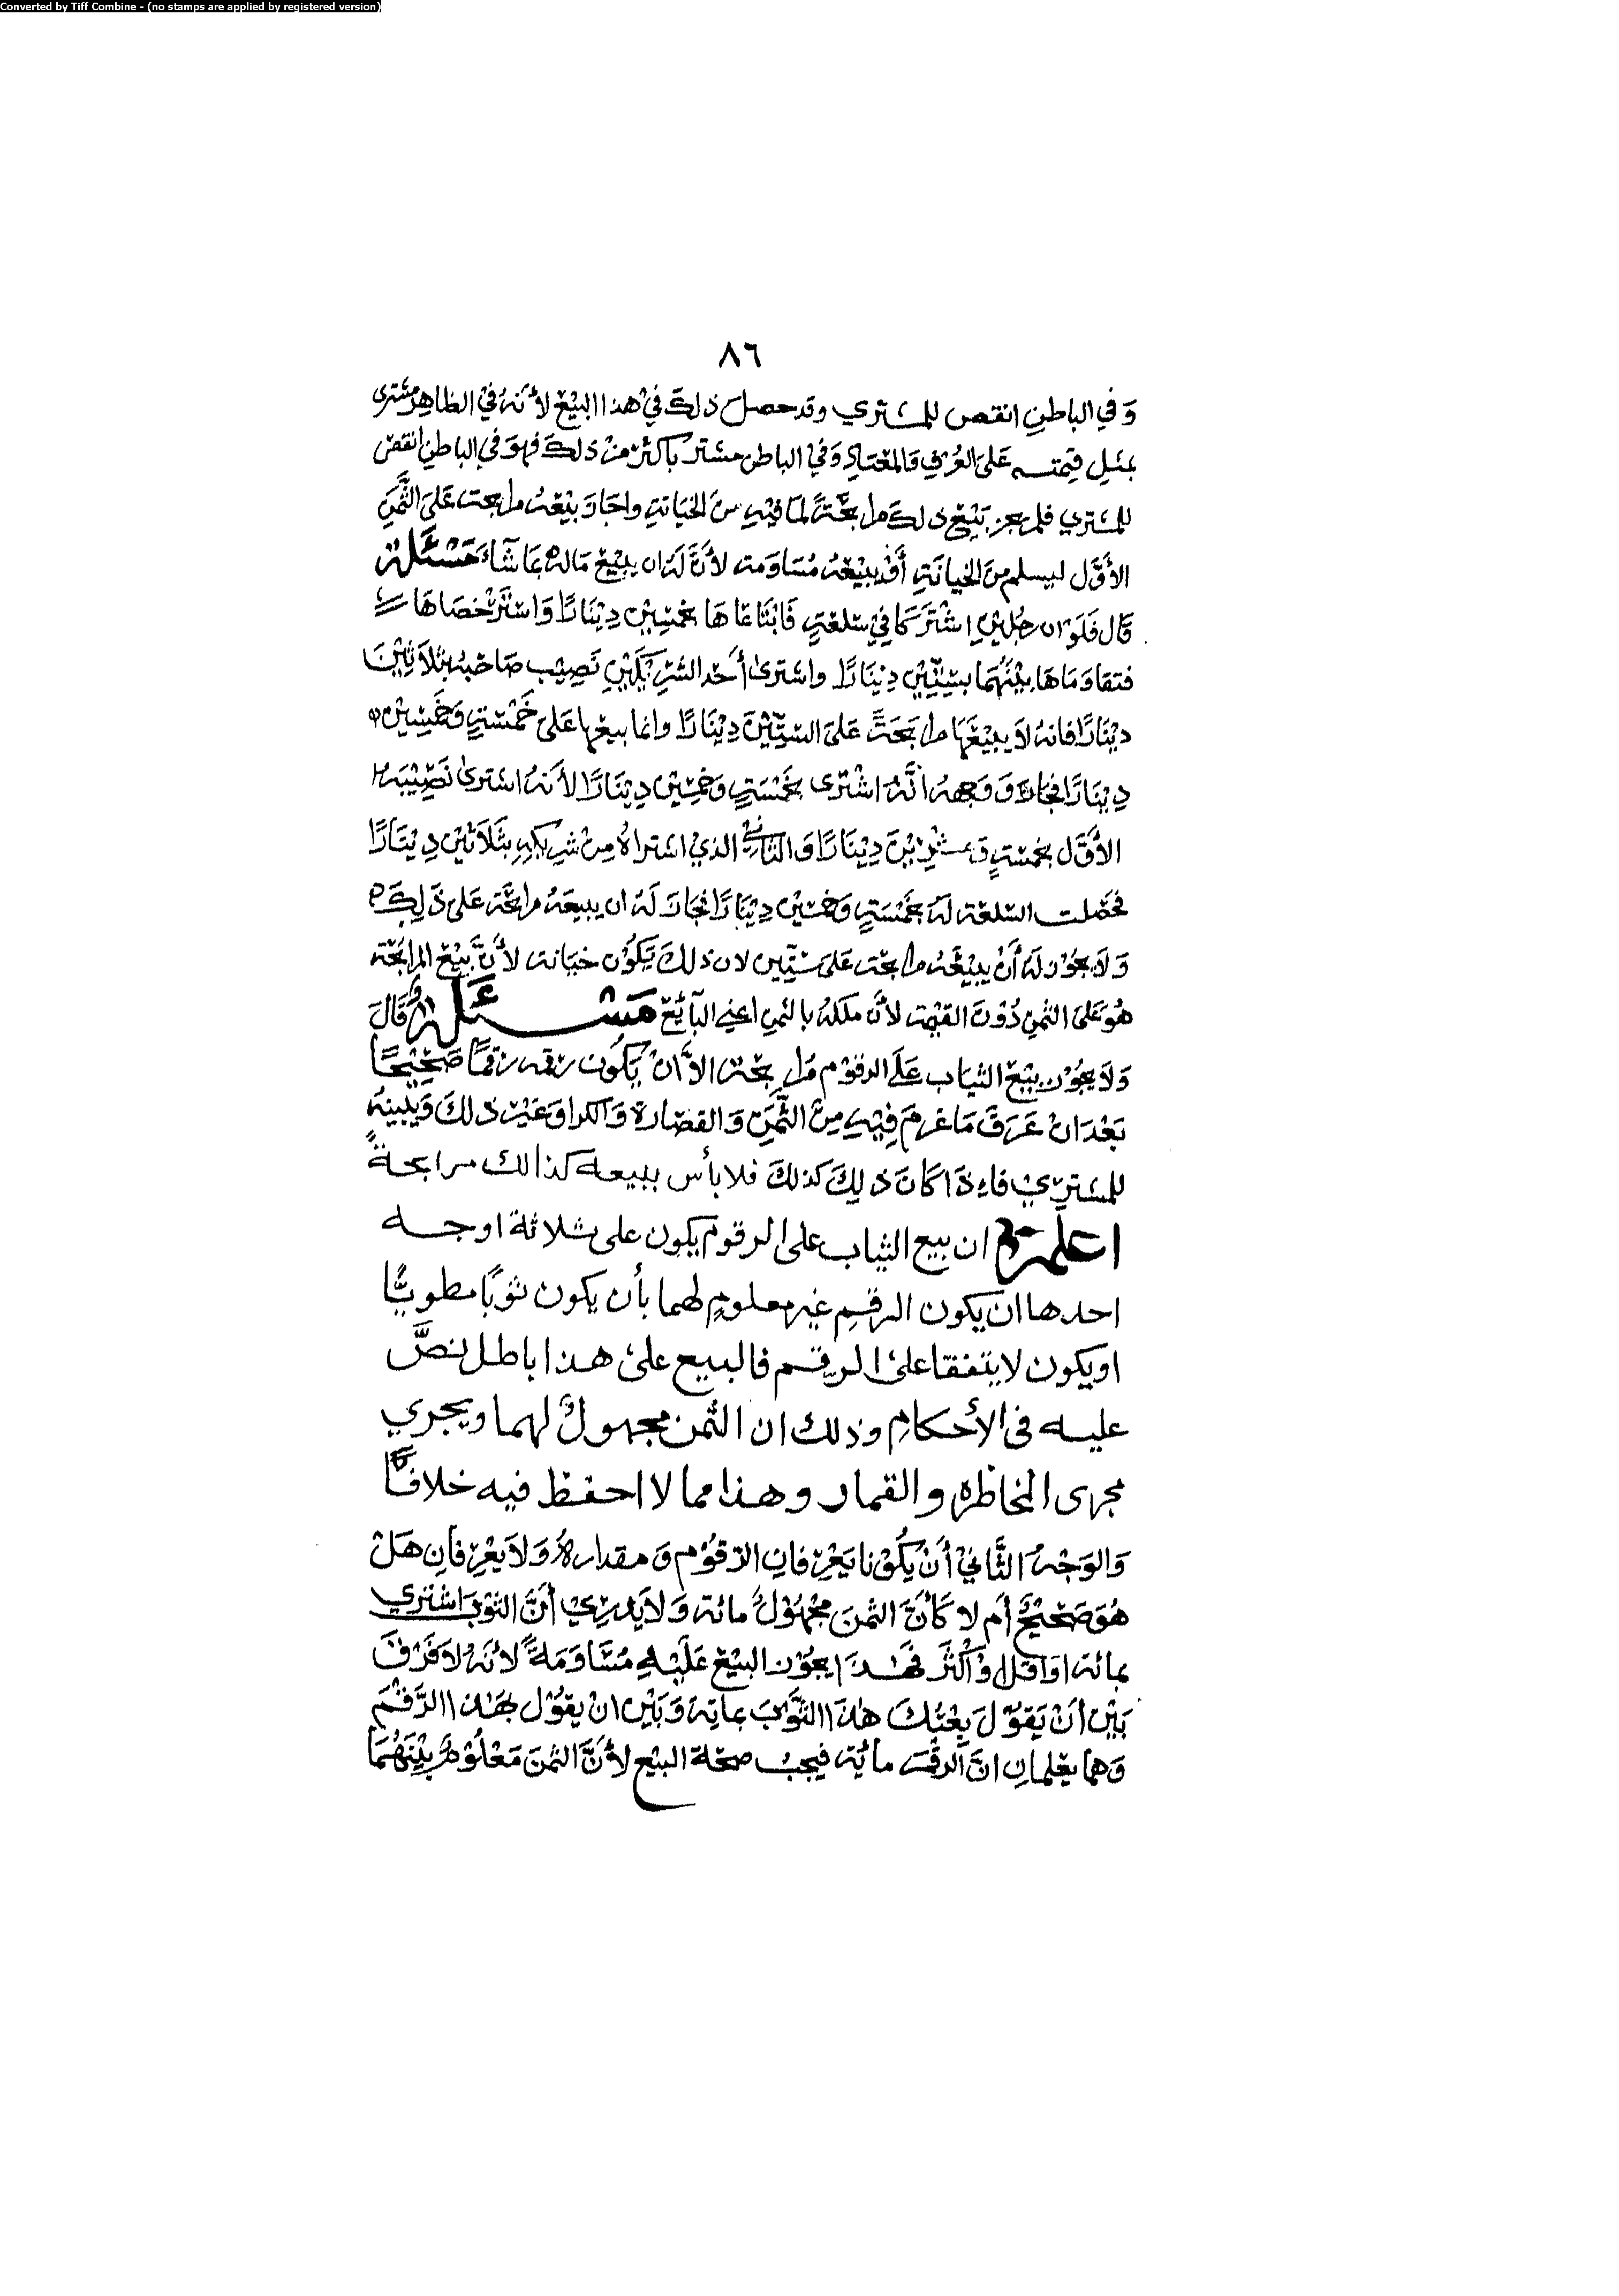 Converted by Tiff Combine - (no stamps are applied by registered version)
٨٦
وَفي الباطنِ انقص للمشتري وقد حصل ذلك في هذا البيع لأنهُ في الظاهِر مشترى
بمثلِ قيمته على العُرفِ والمعتادِ وَفي الباطن مشترٍ بأكثر من ذلك فهوَ في الباطنِ انقصُ
للمشتري فلم يجز بَيْع ذلك مرابحةً لما فيهِ من الخيانةِ واجازَ بيْعهُ مرابحة علىَ الثَّمنِ
الأوَّل ليسلم منَ الخيانَةِ أوْ يبيْعهُ مُسَاوَمة لأنَّ لهُ ان يبيْعَ مَالهُ بما شاءَ مَسْئَلة
قال فلوَ ان رجُليْنِ اشْترَكا فِي سلعةٍ فَابْتَاعَاها بخمسِيْن دِيْنَارًا وَاسْترْخصَاها
فتقاوَمَاهَا بيْنهُمَا بستِّيْن دِيْنَارًا واشترىٰ أحَد الشرِيْكيْنِ نَصِيْب صَاحبهُ بثلاثِيْنَ
ديْنَارًا فانهُ لاَ يبيْعهَا مرابحَةً علىَ الستِّيْنَ دِيْنَارًا وانما يبيعها عَلىَ خَمْسَةٍ وَخمْسِيْن
دِيْنَارًا فجازَ وَوَجهه أنَّهُ اشْترَى بخمْسَةٍ وَخمْسِيْن دِيْنَارًا لأنهُ اشترىٰ نَصِيْبَه
الأوَّل بخمسَةٍ وَعشْرِيْنَ دِيْنَارًا وَالثاني الذِيْ اشتراهُ مِنْ شرِيكهِ بثَلاَثيْن دِيْنَارًا
فحَصَلت السّلعة لَهُ بخمْسَةٍ وَخمسيْن دِيْنَارًا فجازَ لَهُ ان يبيعَهُ مرابحَة عَلىَ ذَلِكَ
وَلاَ يجوْز لهُ أنْ يبيْعَهُ مرابحة علىَ ستيّن لان ذلك يَكُوْن خيَانة لأنَّ بَيْع المرابحَة
هُوَ عَلىَ الثمنِ دُوْنَ القيْمة لأنَّ ملكهُ بالثمنِ اعني البائِعْ مَسْئَلة قَالَ
وَلاَ يجُوْز بَيْع الثيَاب عَلىَ الرقوْم مُرابحة الاَّ انْ يَكُون رقمه رَقمًا صَحِيْحًا
بَعْدَ انْ عَرَفَ مَا غرمَ فِيْهِ مِنْ الثَّمَنِ وَالقصَارة وَالكرا وَغيْر ذلكَ وَيبينهُ
للمشترِيْ فاءِذَا كَانَ ذلِكَ كذلكَ فلا بأس ببيعه كذالك مرابحةً
اعلم ان بيع الثياب على الرقوم يكون على ثلاثة اوجه
احدها ان يكون الرقمِ غير معلومٍ لهما بأن يكون ثوبًا مطويًّا
او يكون لا يتفقا على الرقم فالبيع علىٰ هذا باطل نصَّ
عليه في الأحكامِ وذلك ان الثمن مجهولٌ لهما ويجري
مجرى المخاطرة والقمار وهذا مما لا احفظ فيه خلافًا
وَالوَجْهُ الثَّانِيْ أنْ يَكُوْنا يَعْرِفانِ الرّقوُم وَمقدارهُ وَلاَ يَعْرِفَانِ هَلْ
هُوَ صَحِيْحٌ أم لا كَأنَّ الثمنَ مجْهُوْلٌ مائة وَلاَ يَدْرِيْ أنَّ الثوْبَ اشتري
بمائة اوَاقلَ وْ أكثرَ فَهٰذَا يجوْز البيْع عَليْهِ مُسَاوَمَةً لأنهُ لاَ فَرْقَ
بَيْن أنْ يَقوْلَ بعْتكَ هٰذَا الثَّوْبَ بمائِة وَبَيْن انْ يقوْل بهٰذا الرَّقْمَ
وَهما يعْلمانِ انَّ الرقمَ مائَة فيجبُ صحّة البيْع لأنَّ الثمنَ مَعْلُوْمٌ بيْنَهُمَا